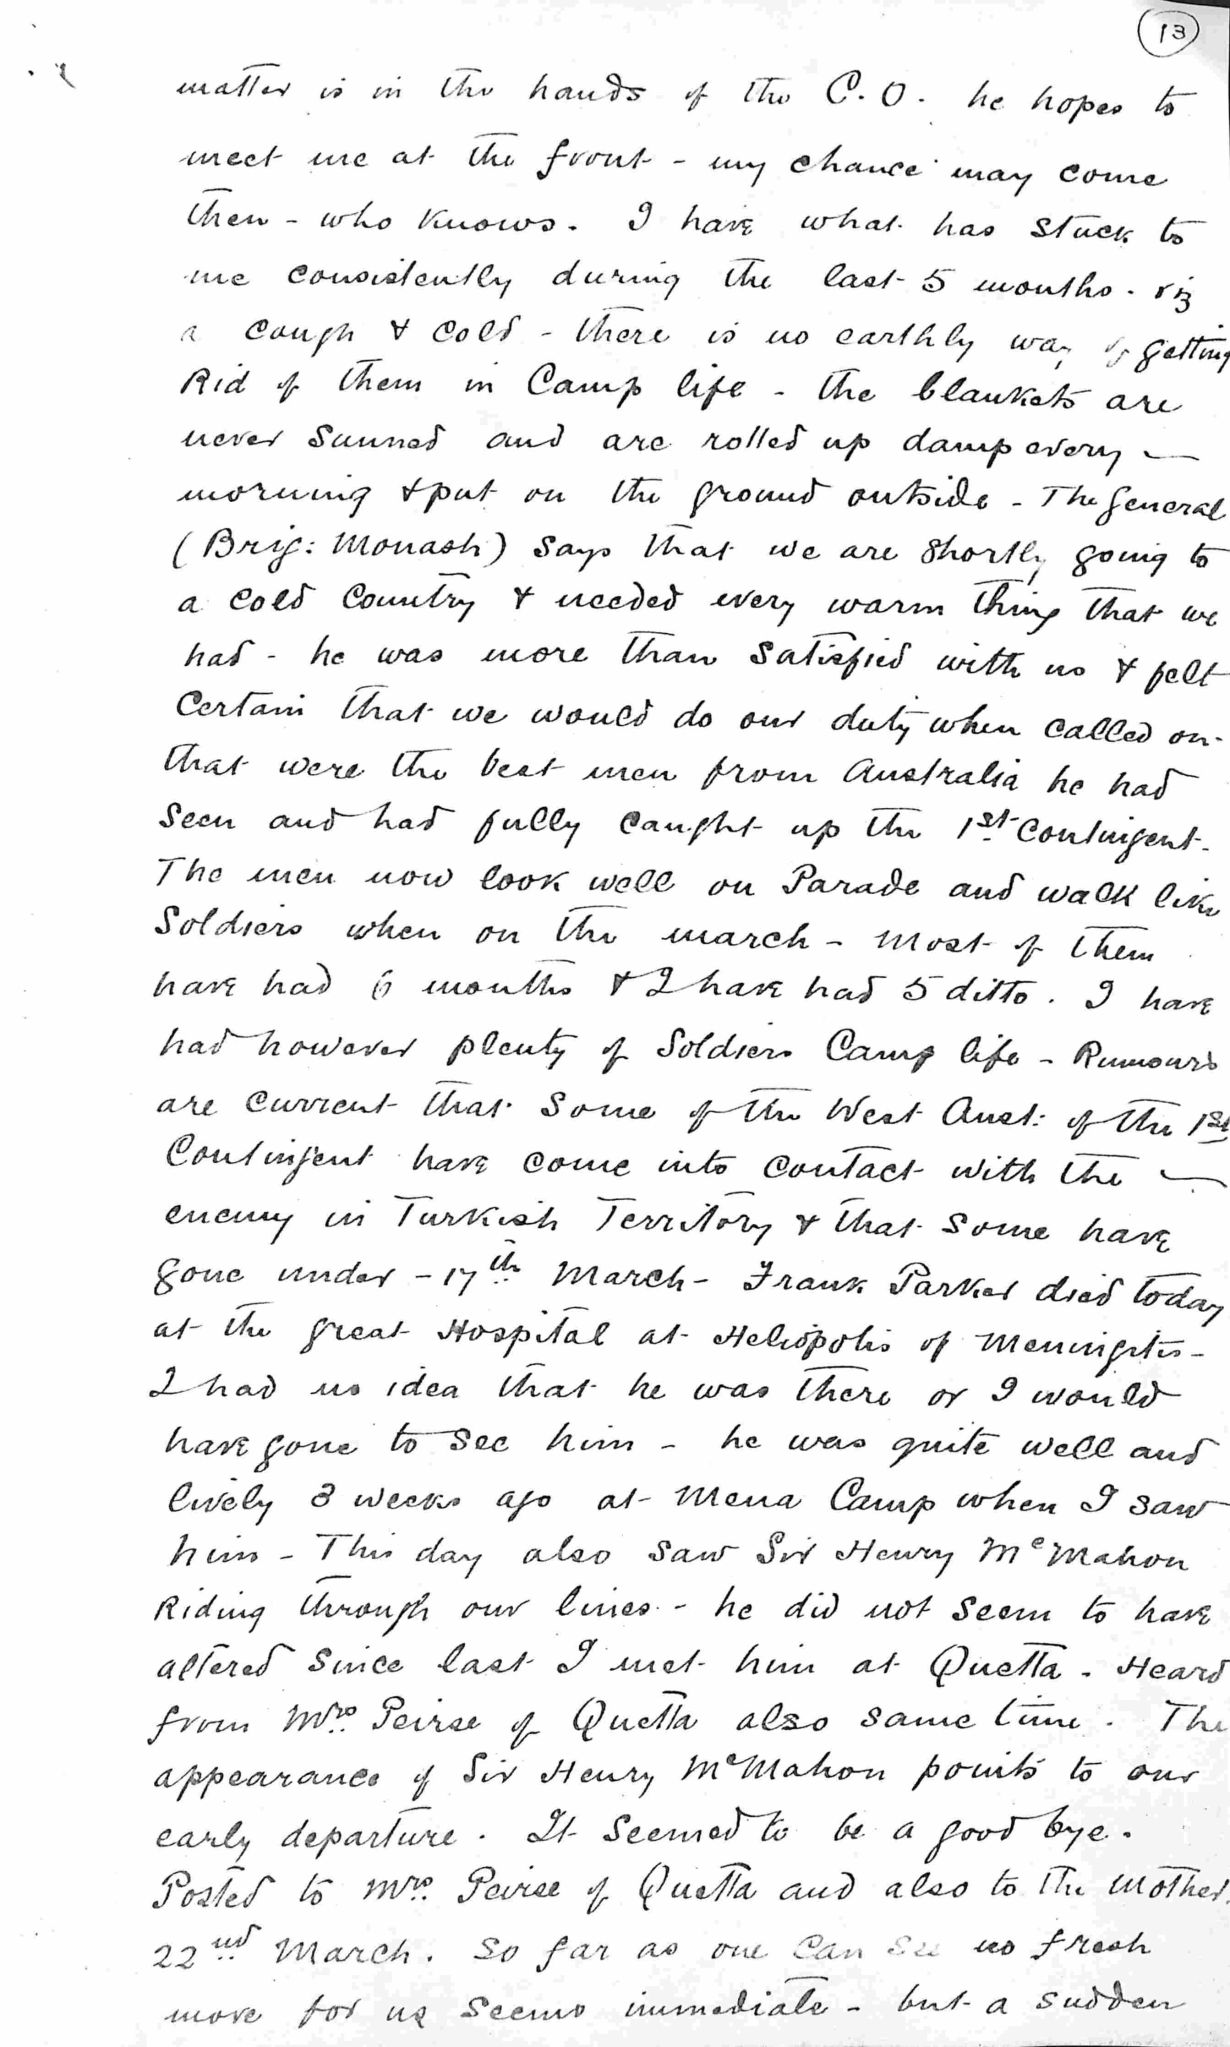 13
matter is in the hands of the C.O. he hopes to
meet me at the front - my chance may come
then - who knows. I have what has stuck to
me consistently during the last 5 months. viz
a cough & cold - there is no earthly way of getting
Rid of them in Camp life - the blankets are
never sunned and are rolled up damp every
morning & put on the ground outside - The General
(Brig: Monash) says that we are shortly going to
a cold country & needed every warm thing that we
had - he was more than satisfied with us & felt
certain that we would do our duty when called on -
that were the best men from Australia he had
seen and had fully caught up the 1st Contingent.
The men now look well on Parade and walk like
Soldiers when on the march - most of them
have had 6 months & I have had 5 ditto. I have
had however plenty of Soldiers Camp life - Rumours
are current that some of the West Aust: of the 1st
Contingent have come into contact with the
enemy in Turkish Territory & that some have
gone under - 17th March - Frank Parker died today
at the great Hospital at Heliopolis of Meningitis -
I had no idea that he was there or I would
have gone to see him - he was quite well and
lively 3 weeks ago at Mena Camp when I saw
him - This day also saw Sir Henry McMahon
Riding through our lines - he did not seem to have
altered since last I met him at Quetta. Heard
from Mrs. Peirse of Quetta also same time. The
appearance of Sir Henry McMahon points to our
early departure. It seemed to be a good bye.
Posted to Mrs. Peirse of Quetta and also to the Mother.
22nd March. So far as one can see no fresh
move for us seems immediate - but a sudden